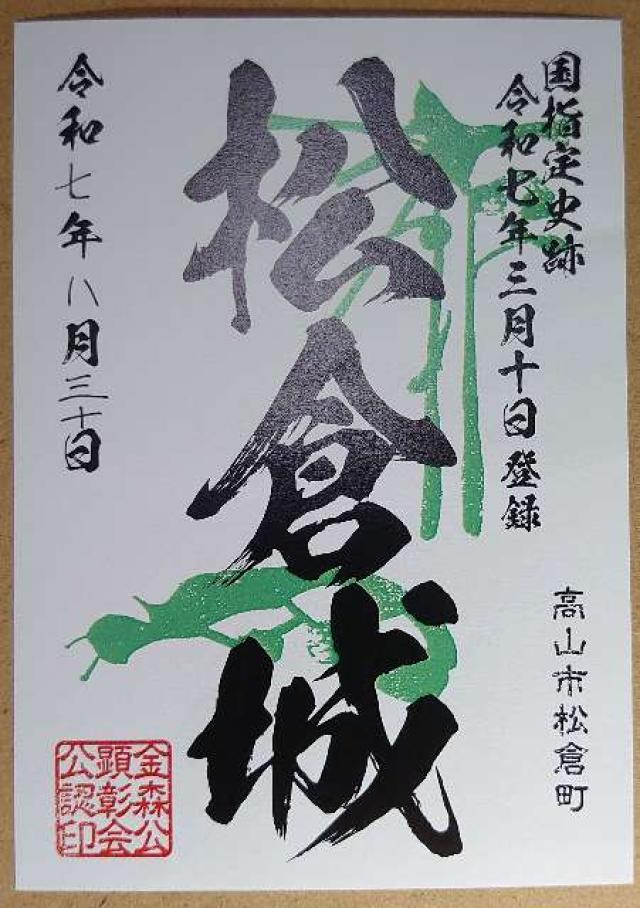 国指定史跡
令和七年三月十日登録
高山市松倉町
松倉城
令和七年八月三十日
金森公
顕彰会
公認印